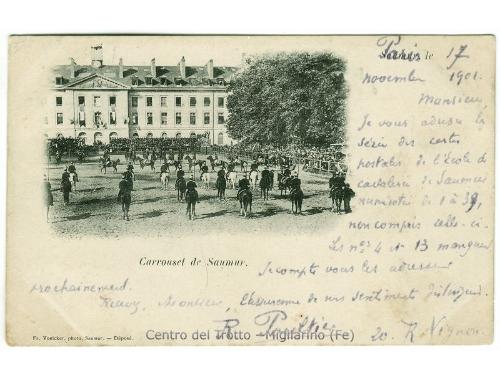 Paris le 17
novembre 1901.
Monsieur,
Je vous adresse la
série des cartes
postales de l'École de
cavalerie de Saumur
numérotée de 1 à 39,
non compris celle-ci.
Les nos 4 et 13 manquent
Je compte vous les adresser
prochainement.
Recevez, Monsieur, l'assurance de mes sentiments distingués.
20. R.
Carrousel de Saumur.
Fr. Voelcker, photo, Saumur. — Déposé.
Centro del Trotto - Migliarino (Fe)